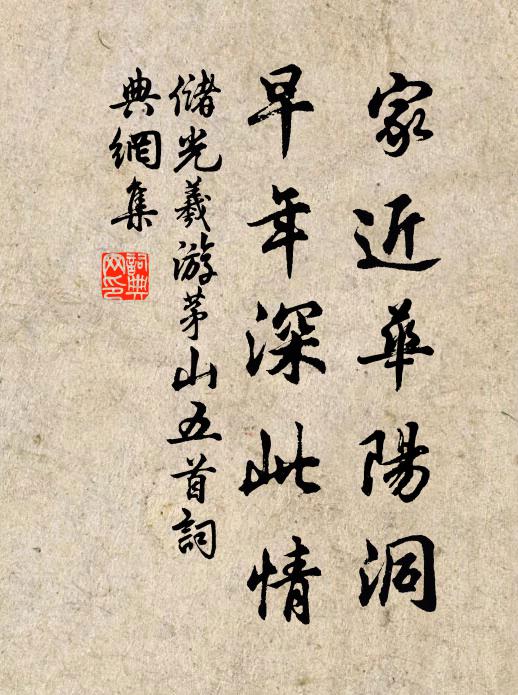 家近華陽洞
早年深此情
儲光羲游茅山五首詞
典網集
詞典
网印